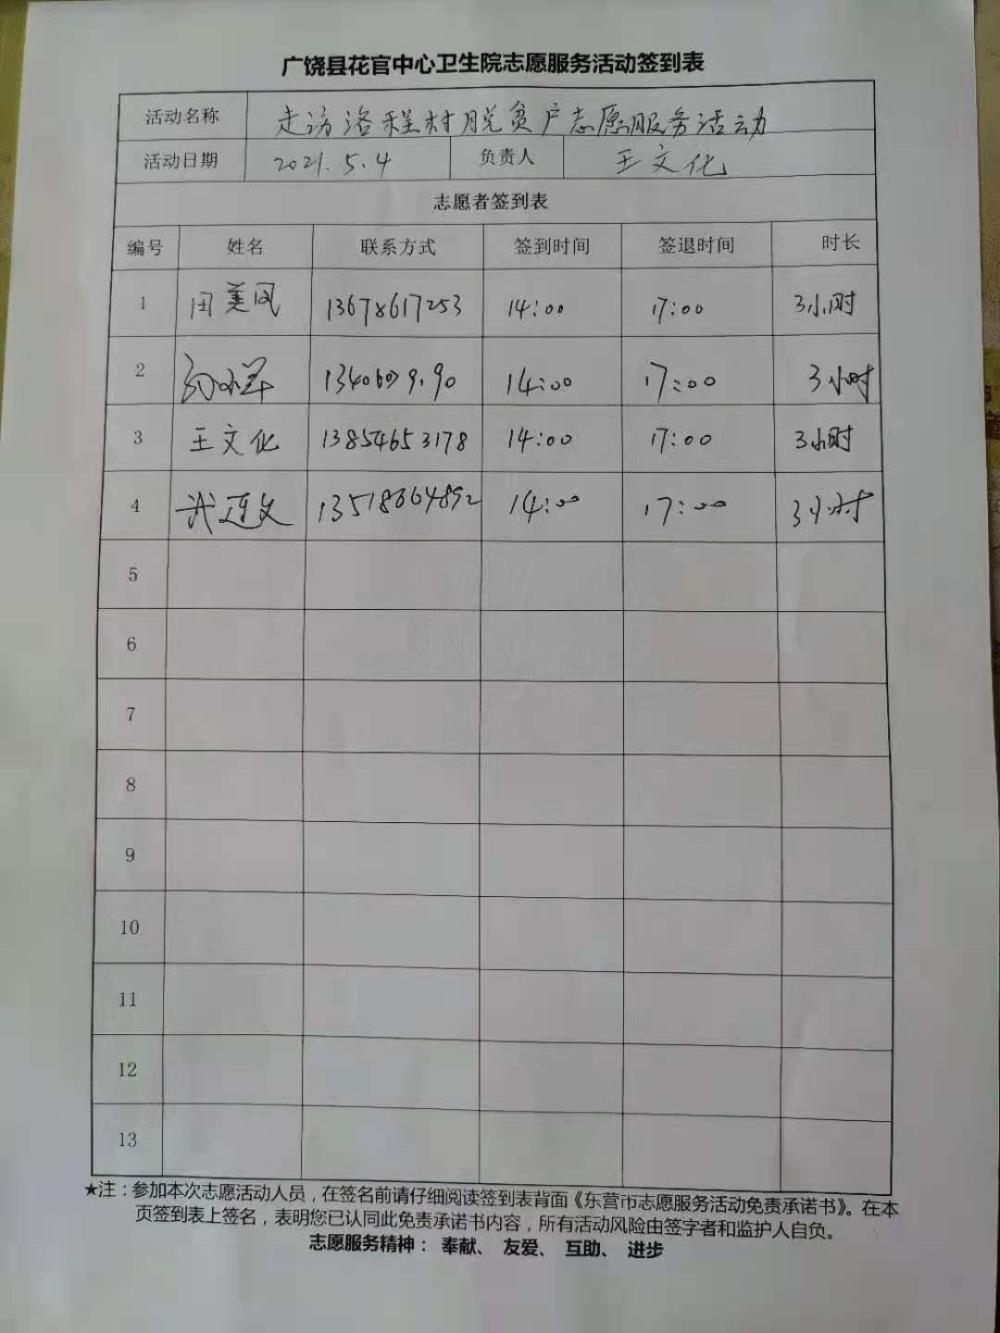 广饶县花官中心卫生院志愿服务活动签到表
活动名称 走访洛程村脱贫户志愿服务活动
活动日期 2021.5.4 负责人 王文化
志愿者签到表
编号 姓名 联系方式 签到时间 签退时间 时长
1 田美凤 13678617253 14:00 17:00 3小时
2 14:00 17:00 3小时
3 王文化 13854653178 14:00 17:00 3小时
4 武连文 14:00 17:00 3小时
5
6
7
8
9
10
11
12
13
★注：参加本次志愿活动人员，在签名前请仔细阅读签到表背面《东营市志愿服务活动免责承诺书》。在本
页签到表上签名，表明您已认同此免责承诺书内容，所有活动风险由签字者和监护人自负。
志愿服务精神： 奉献、 友爱、 互助、 进步